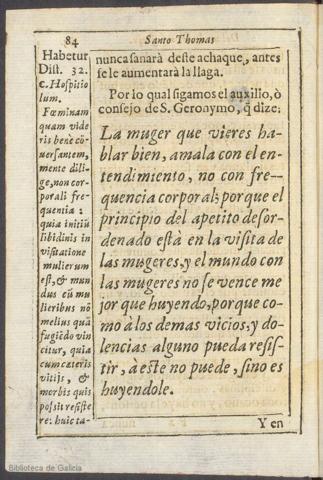 84
Santo Thomas
Habetur
Dist. 32.
c. Hospitio
lum.
Fœminam
quam vide
ris bene cõ
uersantem,
mente dili-
ge, non cor-
porali fre
quentia:
quia initiũ
libidinis in
visitatione
mulierum
est, & mun
dus cũ mu
lieribus nõ
melius quã
fugiẽdo vin
citur, quia
cum cæteris
vitijs, &
morbis quis
possit resiste
re: huic ta-
nunca sanarà deste achaque, antes
se le aumentarà la llaga.
Por lo qual sigamos el auxilio, ò
consejo de S. Geronymo, q̃ dize:
La muger que vieres ha-
blar bien, amala con el en-
tendimiento, no con fre-
quencia corporal; porque el
principio del apetito desor-
denado està en la visita de
las mugeres, y el mundo con
las mugeres no se vence me
jor que huyendo, porque co-
mo à los demas vicios, y do-
lencias alguno pueda resis-
tir, a este no puede, sino es
huyendole.
Y en
Biblioteca de Galicia